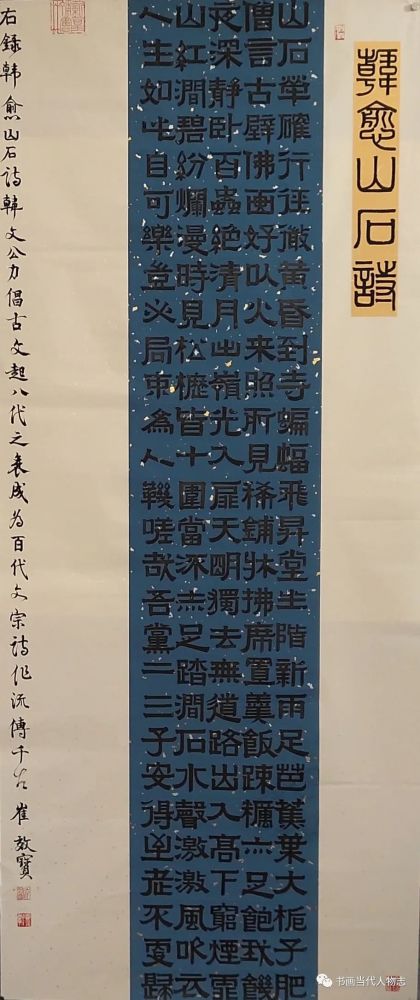 韓愈山石詩
山石犖確行徑微黃昏到寺蝙蝠飛昇堂坐階新雨足芭蕉葉大梔子肥
僧言古壁佛画好以火来照所見稀鋪牀拂席置羹飯疎糲亦足飽我饑
夜深靜卧百蟲絶清月出嶺光入扉天明獨去無道路出入高下窮煙霏
山紅澗碧紛爛漫時見松櫪皆十圍當流赤足踏澗石水聲激激風吹衣
人生如此自可樂豈必局束為人鞿嗟哉吾黨二三子安得至老不更歸
右錄韓愈山石詩韓文公力倡古文起八代之衰成为百代文宗詩作流傳千古 崔效寶
书画当代人物志